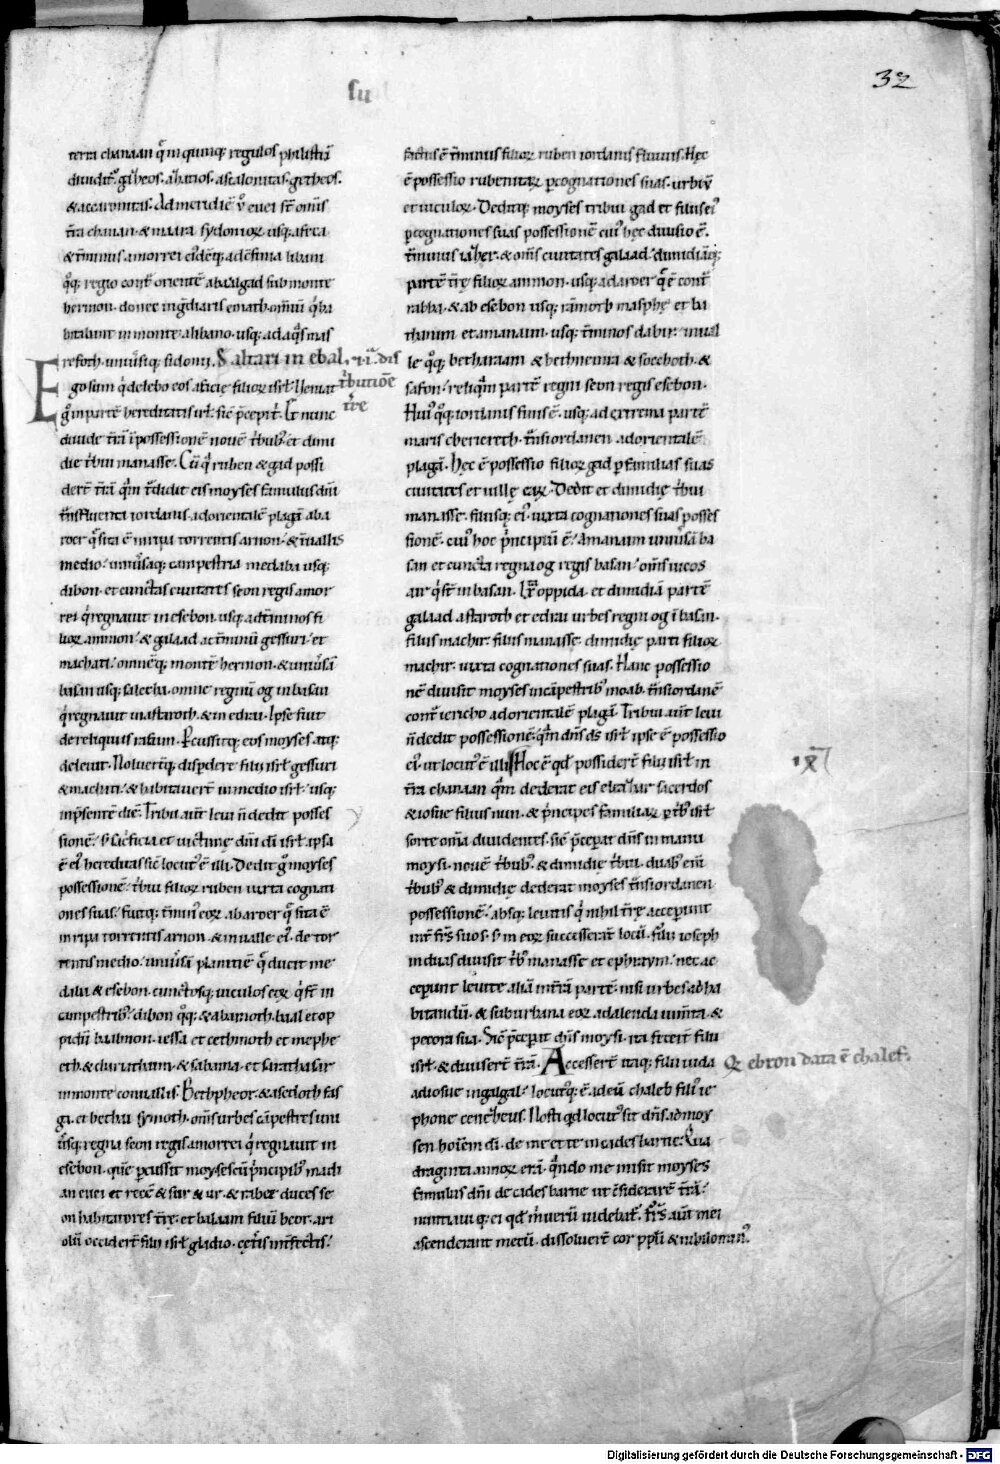 su
32
terra chanaan q̄ in quinq; regulos philistiī
diuidit᷑ gazeos · azotios · ascalonitas · getheos ·
& accaronitas · Ad meridiē ů euei st̄ om̄s
t̄ra chanan · & maara sydonioꝝ usq; afeca
& t̄minus amorrei
q̊q; regio cont̄ orientē abaalgad sub monte
hermon · donec ingrediaris emath · om̄iū q̇ ha
bitabant in monte · alibano · usq; ad aq̄s mas
refoth · uniuersiq; sidonii · Saltari in ebal · dis
tributiōe
t̄re
Ego sum q̇ delebo eos a facie filioꝝ isrl̄ Ueniat
g̊ in partē hereditatis isrl̄ sic̄ p̄cepit · Et nunc
diuide t̄rā ī possessionē nouē t̄bub; et dimi
die t̄bui manasse · Cū q̄ ruben & gad possi
dert̄ t̄rā q̄m t̄didit eis moyses famulus dn̄i
t̄ns fluenta iordanis · ad orientalē plagā · aba
roer q̄ sita ē in ripa torrentis arnon · & in uallis
medio · uniūsaq; campestria medaba usq;
dibon · et cunctas ciuitates seon regis amor
rei q̇ regnauit in esebon · usq; ad t̄minos fi
lioꝝ ammon · & galaad ac t̄minū gessuri · et
machati · omnēq; montē hermon · & uniūsā
basan usq; salecha · omne regnū og in basan
q̇ regnauit in astaroth · & in edrai · Ipse fuit
de reliquiis rafaim · Percussitq; eos moyses atq;
deleuit · Nolueruntq; dispdere filii isrl̄ gessuri
& machati · & habitauert̄ in medio isrl̄ · usq;
in p̄sentē diē · Tribui aut̄ leui n̄ dedit posses
sionē · s; sacrificia et uictimę dn̄i dī isrl̄ · ipsa
ē ei hereditas sic̄ locut; ē illi · Dedit g̊ moyses
possessionē t̄bui filioꝝ ruben iuxta cognati
ones suas · fuitq; t̄min; eoꝝ ab aroer q̄ sita ē
in ripa torrentis arnon · & in ualle ei; de tor
rentis medio · uniūsā planitiē q̄ ducit me
daba & esebon · cunctosq; uiculos eoꝝ q̇ st̄ in
campestrib; · dibon q̊q; & abamoth · baal et op
pidū baalmon · iessa et cethmoth et mephe
eth · & chariathaim · & sabama · et sarathasar
in monte conuallis · Bethpheor · & asedoth fas
ga · et bethai symoth · om̄s urbes cāpestres uni
ūsq; regna seon regis amorrei q̇ regnauit in
esebon · quē p̄cussit moyses cū p̄ncipib; madi
an euei et recē & sur & ur · & rabee duces se
on habitatores t̄re · et balaam filiū beor · ari
olū occidert̄ filii isrl̄ gladio · cęt̄is int̄fectis ·
factus ē t̄minus filioꝝ ruben iordanis fluuius · Hęc
ē possessio rubenitaꝝ p cognationes suas · urbiū
et uiculoꝝ · Deditq; moyses tribui gad et filiis ei;
p cognationes suas possessionē cui; hęc diuisio ē ·
t̄minus iazer · & om̄s ciuitates galaad · dimidiāq;
partē t̄rę filioꝝ ammon · usq; ad aroer q̄ ē cont̄
rabba · & ab esebon usq; ramoth masphę et ba
thanim et amanaim · usq; t̄minos dabir · in ual
le q̊q; betharam & bethnemra & socchoth · &
safon · reliquām partē regni seon regis esebon ·
Hui; q̊q; iordanis finis ē · usq; ad extrema partē
maris chenereth · t̄ns iordanen ad orientalē
plagā · Hęc ē possessio filioꝝ gad p familias suas
ciuitates et uillę eaꝝ · Dedit et dimidię t̄bui
manasse · filiisq; ei; iuxta cognationes suas posses
sionē · cui; hoc p̄ncipiū ē · Amanaim uniūsā ba
san et cuncta regna og regis basan · om̄s uicos
air q̇ st̄ in basan · lx̄ oppida · et dimidiā partē
galaad astaroth et edrai urbes regni og ī basan ·
filiis machir · filiis manasse · dimidię parti filioꝝ
machir · iuxta cognationes suas · Hanc possessio
nē diuisit moyses in cāpestrib; moab · t̄ns iordanē
cont̄ iericho ad orientalē plagā · Tribui aut̄ leui
n̄ dedit possessionē · q̄m dn̄s ds̄ isrl̄ ipse ē possessio
ei; · ut locut; ē illi · Hoc ē qd̄ possidert̄ filii isrl̄ in
t̄ra chanaan q̄m dederat eis eleazar sacerdos
& iosue filius nun · & p̄ncipes familiaꝝ p t̄b; isrl̄
sorte om̄a diuidentes · sic̄ p̄ceperat dn̄s in manu
moysi · nouē t̄bub; · & dimidię t̄bui · duab; eni̅
t̄bub; & dimidię dederat moyses t̄ns iordanen
possessionē · absq; leuitis q̇ nihil t̄rę acceperunt
int̄ frs̄ suos · s; in eoꝝ successerāt locū · filii ioseph
in duas diuisit t̄b; manasse et ephraym · nec ac
ceperunt leuite aliā in t̄ra partē · nisi urbes ad ha
bitandū · & suburbana eoꝝ ad alenda iumt̄a · &
pecora sua · Sic̄ p̄ceperat dn̄s moysi · ita fecert̄ filii
isrl̄ · & diuisert̄ t̄rā · Accessert̄ itaq; filii iuda
Q; ebron data ē chalef ·
ad iosue in galgal · locut;q; ē ad eū chaleb fili; ie
phone cenezeus · Nosti qd̄ locut; sit dn̄s ad moy
sen hoīem dī · de me et te in cades barne · Qua
draginta annoꝝ erā · q̄ndo me misit moyses
famulus dn̄i de cades barne ut c̄siderarē t̄rā ·
nuntiauiq; ei qd̄ m̄ uerū uidebat᷑ · frs̄ aut̄ mei
ascenderant mecū · dissoluert̄ cor ppl̄i · & nihilomin;
Digitalisierung gefördert durch die Deutsche Forschungsgemeinschaft - DFG